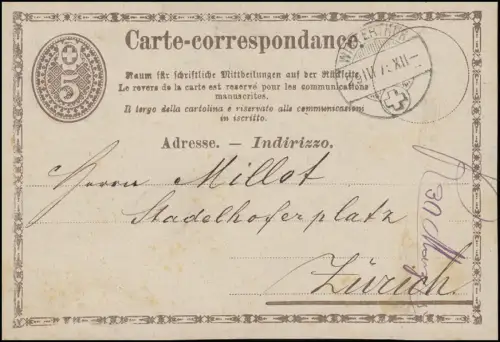 Carte-correspondance.
5
WINTERTHUR
XII
Raum für schriftliche Mittheilungen auf der Rückseite.
Le revers de la carte est reservé pour les communications
manuscrites.
Il tergo della cartolina e riservato alle communicazioni
in iscritto.
Adresse. — Indirizzo.
Herrn Millot
Stadelhoferplatz
30
Zürich.